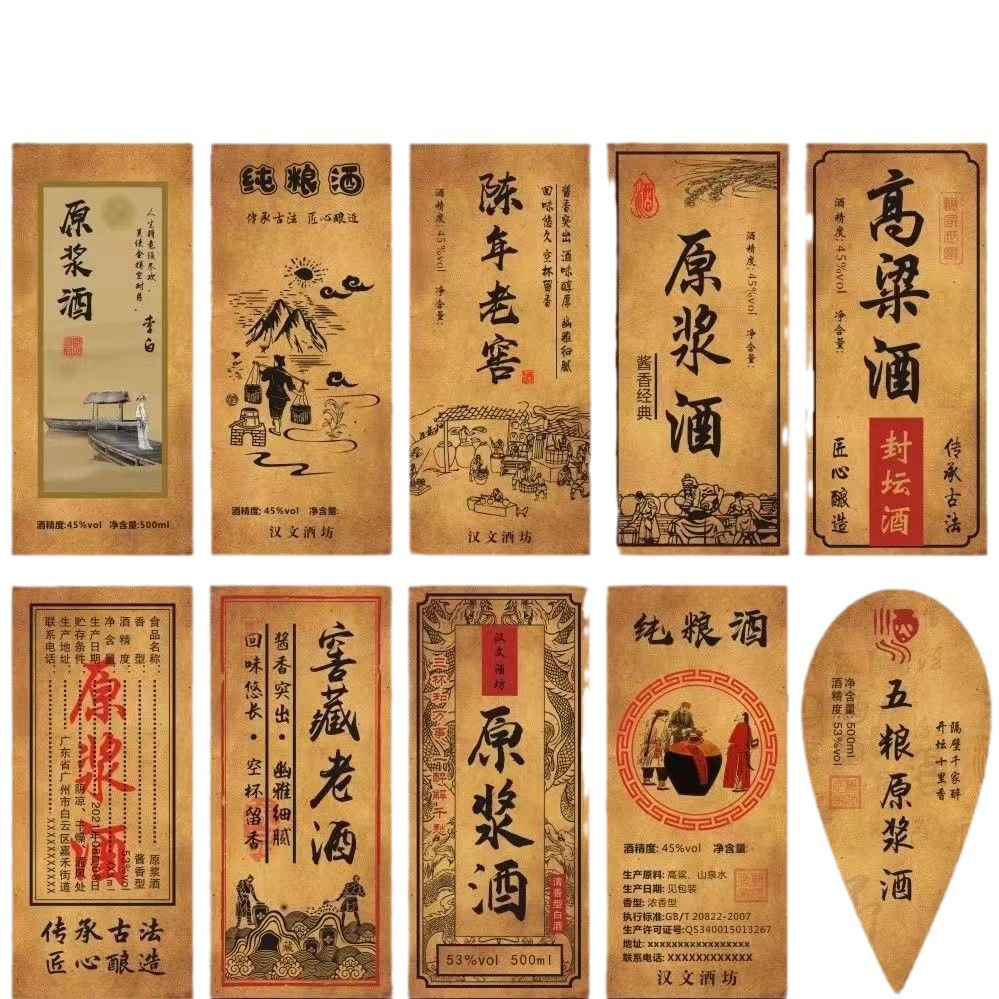 原浆酒
人生得意须尽欢，
莫使金樽空对月。
李白
酒精度:45%vol 净含量:500ml
纯粮酒
传承古法 匠心酿造
酒精度: 45%vol 净含量:
汉文酒坊
酱香突出 酒味醇厚 幽雅细腻
回味悠久 空杯留香
陈年老窖
酒精度: 45%vol 净含量:
汉文酒坊
酒精度: 45%vol 净含量:
原浆酒
酱香经典
高粱酒
酒精度: 45%vol 净含量:
传承古法
封坛酒
匠心酿造
食品名称: 原浆酒
香型: 酱香型
酒精度: 53%vol
净含量: XXml
生产日期: 2021年08月08日
贮存条件: 阴凉、干燥、通风处
生产地址: 广东省广州市白云区嘉禾街道
联系电话: XXXXXXXXXXX
原浆酒
传承古法
匠心酿造
窖藏老酒
酱香突出·幽雅细腻
回味悠长·空杯留香
藏
汉文酒坊
原浆酒
三杯和万事
一醉解千秋
清香型白酒
53%vol 500ml
纯粮酒
酒精度: 45%vol 净含量:
生产原料: 高粱、山泉水
生产日期: 见包装
香型: 浓香型
执行标准:GB/T 20822-2007
生产许可证号:QS340015013267
地址: xxxxxxxxxxxxxxxxx
联系电话: XXXXXXXXXXXX
汉文酒坊
隔壁千家醉
开坛十里香
五粮原浆酒
净含量: 500ml
酒精度: 53%vol